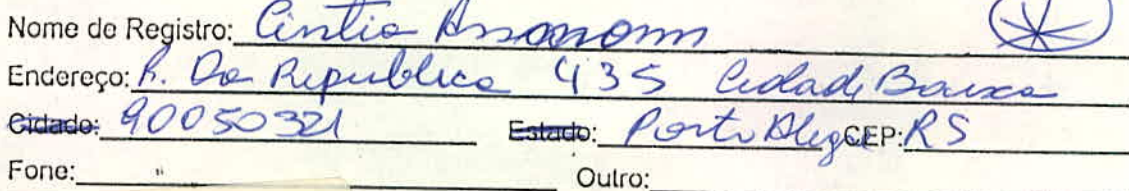 Nome de Registro: Cintia
Endereço: R. Da Republica 435 Cidade Baixa
Cidade: 90050321 Estado: Porto Alegre CEP: RS
Fone: Outro: